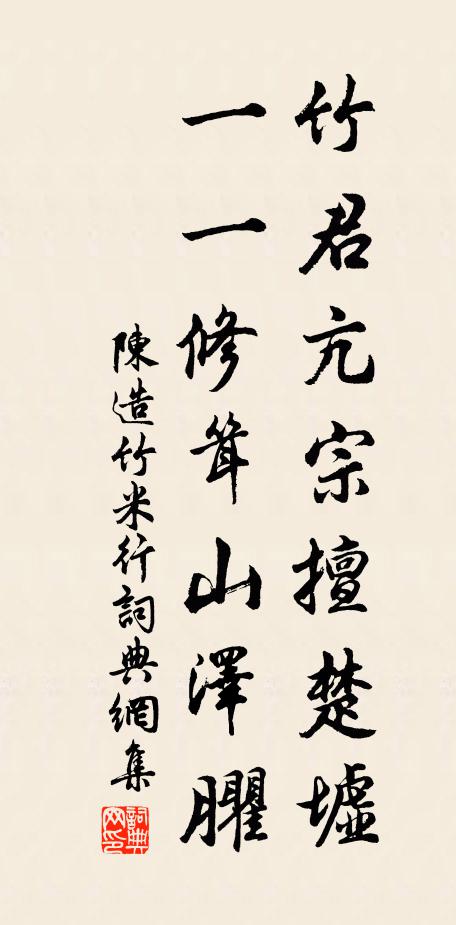 竹君亢宗擅楚墟
一一修耸山澤臞
陳造竹米行詞典網集
詞典网印